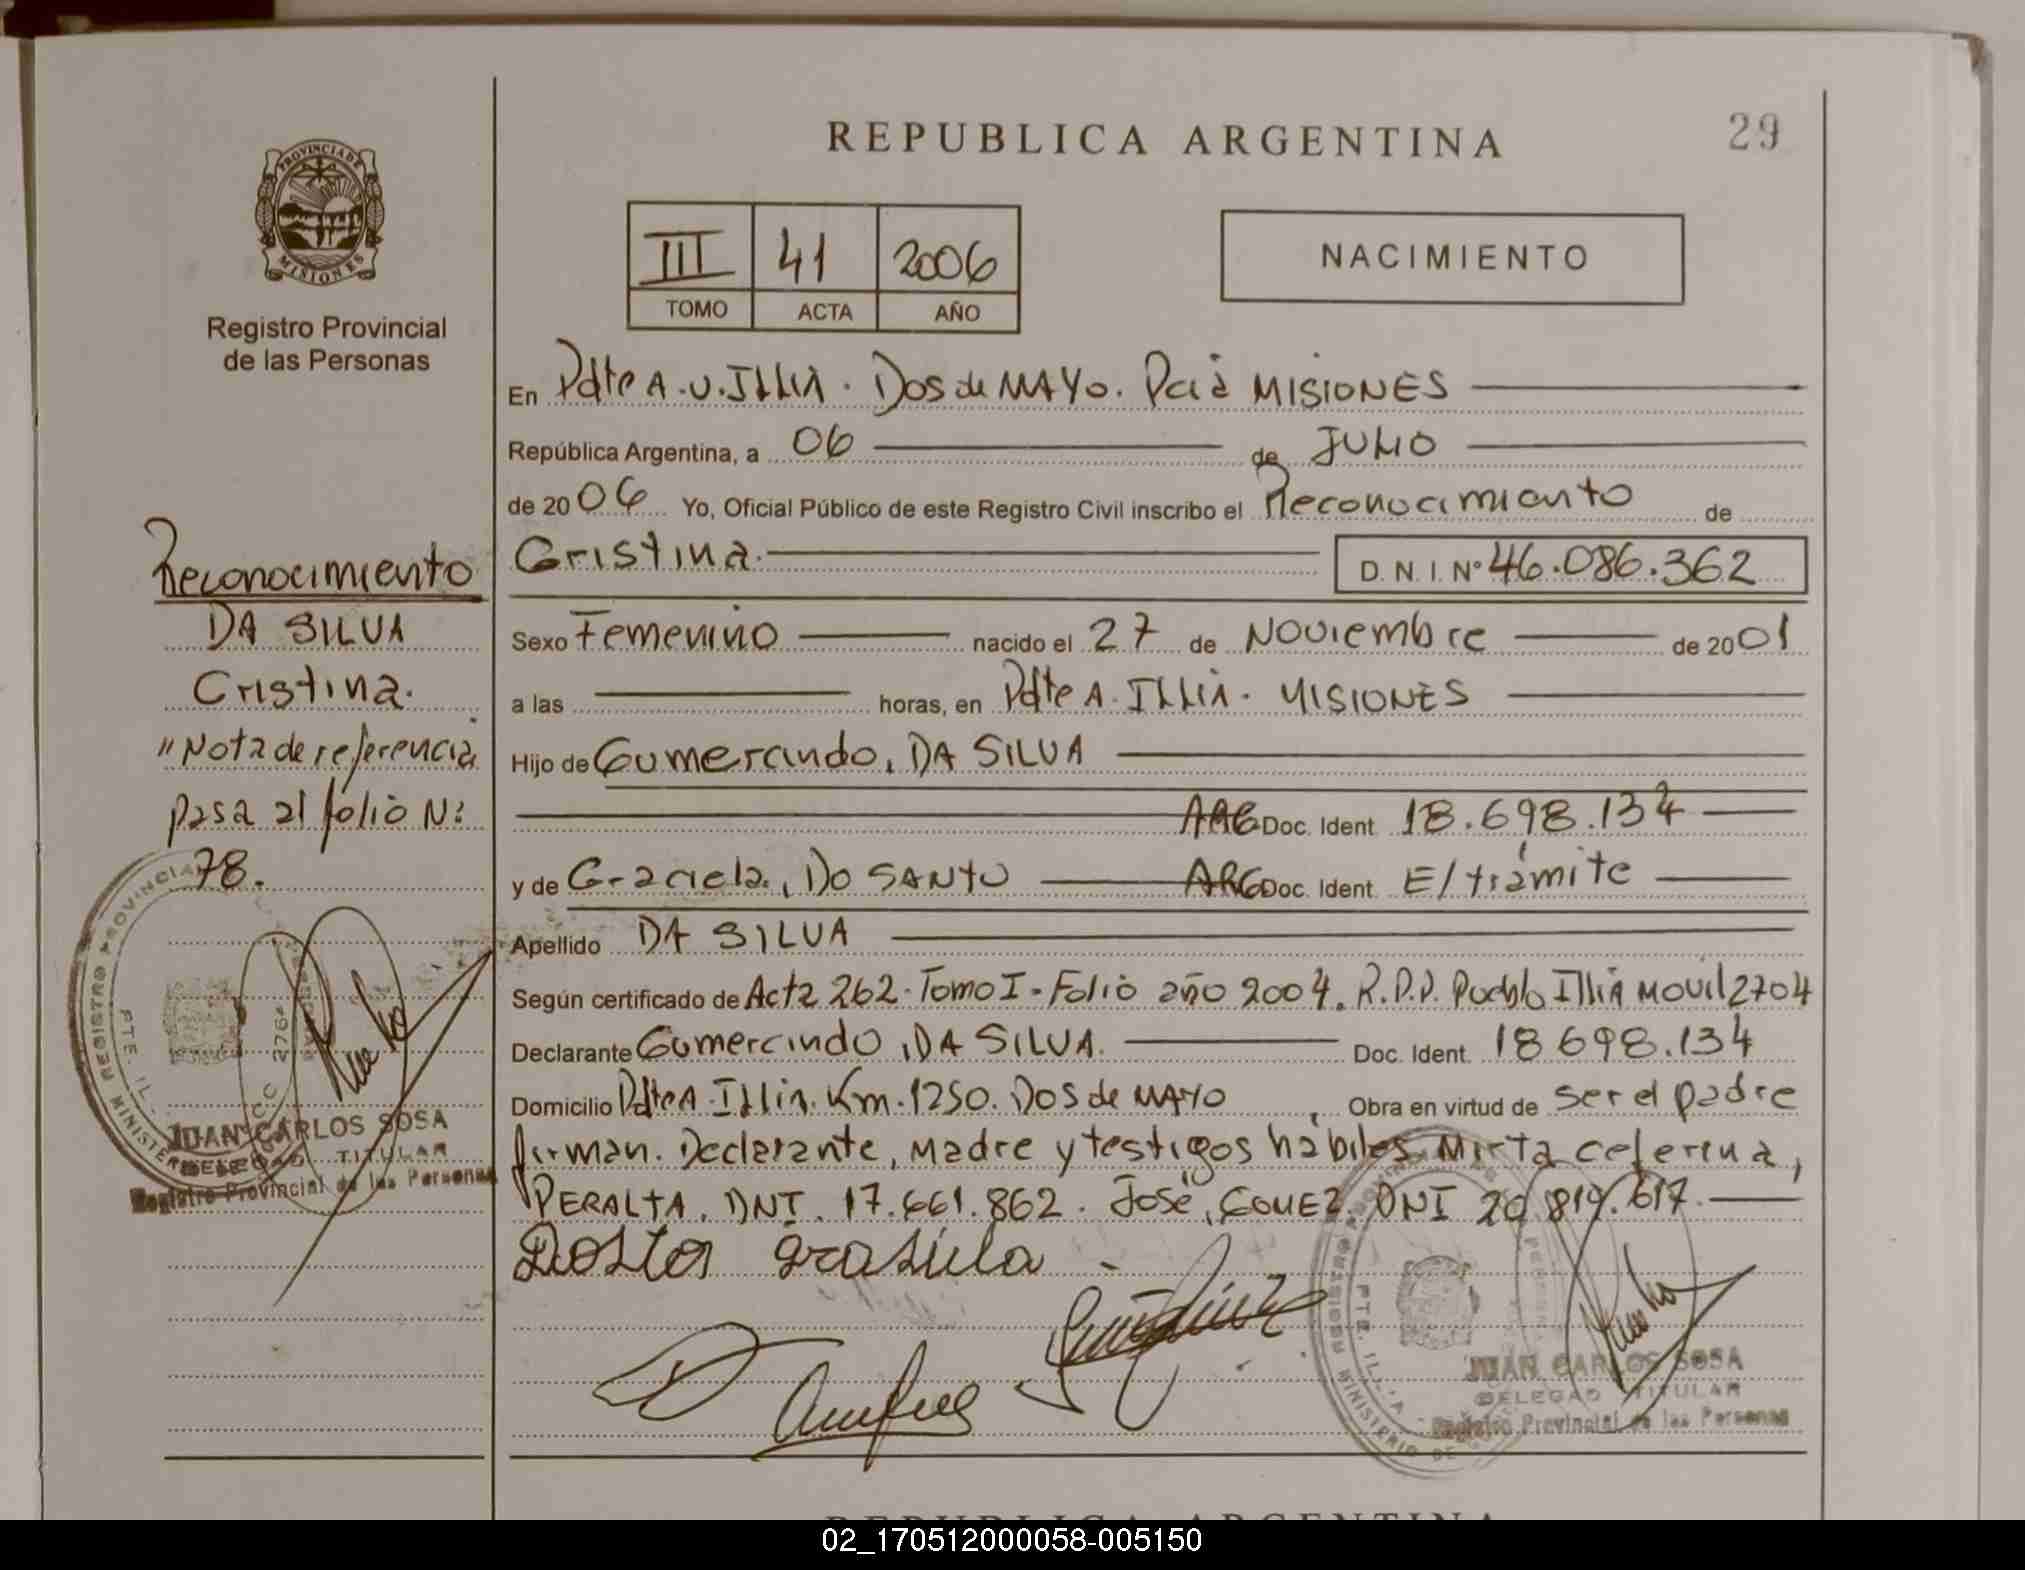 REPUBLICA ARGENTINA
29
PROVINCIA DE
MISIONES
Registro Provincial
de las Personas
III 41 2006
TOMO ACTA AÑO
NACIMIENTO
En Pdte A. U. ILLIA. Dos de MAYO. Pcia MISIONES
República Argentina, a 06 de JULIO
de 2006 Yo, Oficial Público de este Registro Civil inscribo el Reconocimiento de
Cristina. D. N. I. Nº 46.086.362
Sexo Femenino nacido el 27 de Noviembre de 2001
a las horas, en Pdte A. ILLIA. MISIONES
Hijo de Gumercindo, DA SILVA
ARG Doc. Ident. 18.698.134
y de Graciela, DO SANTO ARG Doc. Ident. E/trámite
Apellido DA SILVA
Según certificado de Acta 262. Tomo I - Folio año 2004. R.P.P. Pueblo Illia MOVIL 2704
Declarante Gumercindo, DA SILVA. Doc. Ident. 18.698.134
Domicilio Pdte A. Illia. Km. 1250. Dos de MAYO, Obra en virtud de ser el padre
firman. Declarante, Madre y testigos hábiles Mirta Ceferina,
PERALTA. DNI. 17.661.862. José, GOMEZ DNI 20.819.617.
Reconocimiento
DA SILVA
Cristina.
"Nota de referencia
pasa al folio Nº
78.
REGISTRO PROVINCIAL
MINISTERIO
JUAN CARLOS SOSA
DELEGADO TITULAR
Registro Provincial de las Personas
JUAN CARLOS SOSA
DELEGADO TITULAR
Registro Provincial de las Personas
REPUBLICA ARGENTINA
02_170512000058-005150